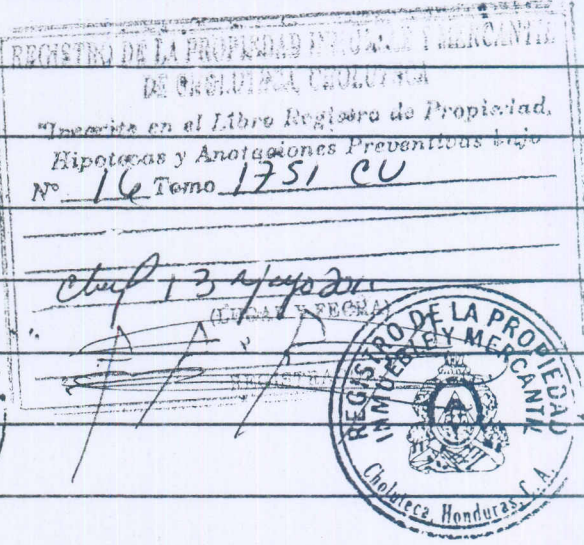 REGISTRO DE LA PROPIEDAD INMUEBLE Y MERCANTIL
DE CHOLUTECA, CHOLUTECA
"Inscrito en el Libro Registro de Propiedad,
Hipotecas y Anotaciones Preventivas bajo
N° 16 Tomo 1751 CU
13 Mayo 2011
(LUGAR Y FECHA)
REGISTRA
REGISTRO DE LA PROPIEDAD
INMUEBLE Y MERCANTIL
Choluteca, Honduras, C. A.